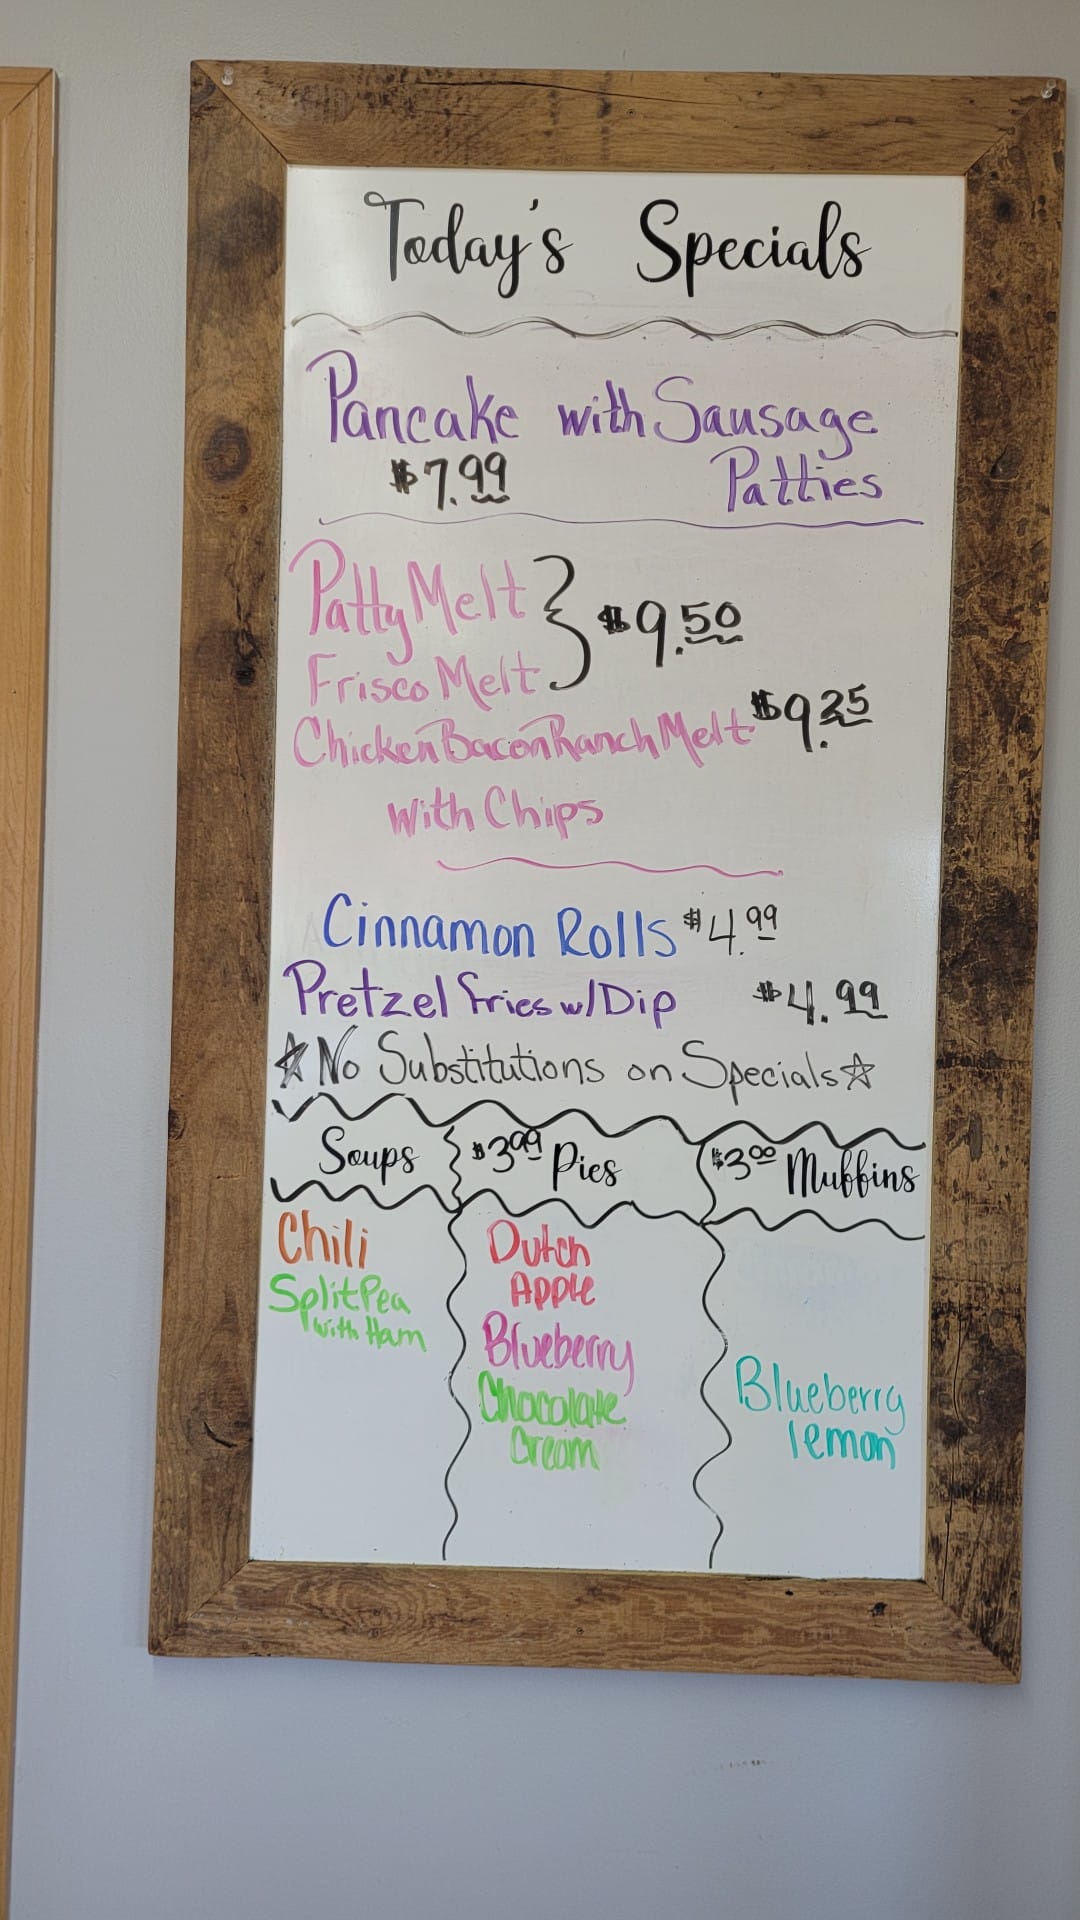 Today's Specials
Pancake with Sausage
$7.99 Patties
Patty Melt } $9.50
Frisco Melt
Chicken Bacon Ranch Melt $9.25
with Chips
Cinnamon Rolls $4.99
Pretzel fries w/Dip $4.99
☆No Substitutions on Specials☆
Soups
Chili
Split Pea
with Ham
$3.99 Pies
Dutch
Apple
Blueberry
Chocolate
Cream
$3.00 Muffins
Blueberry
lemon